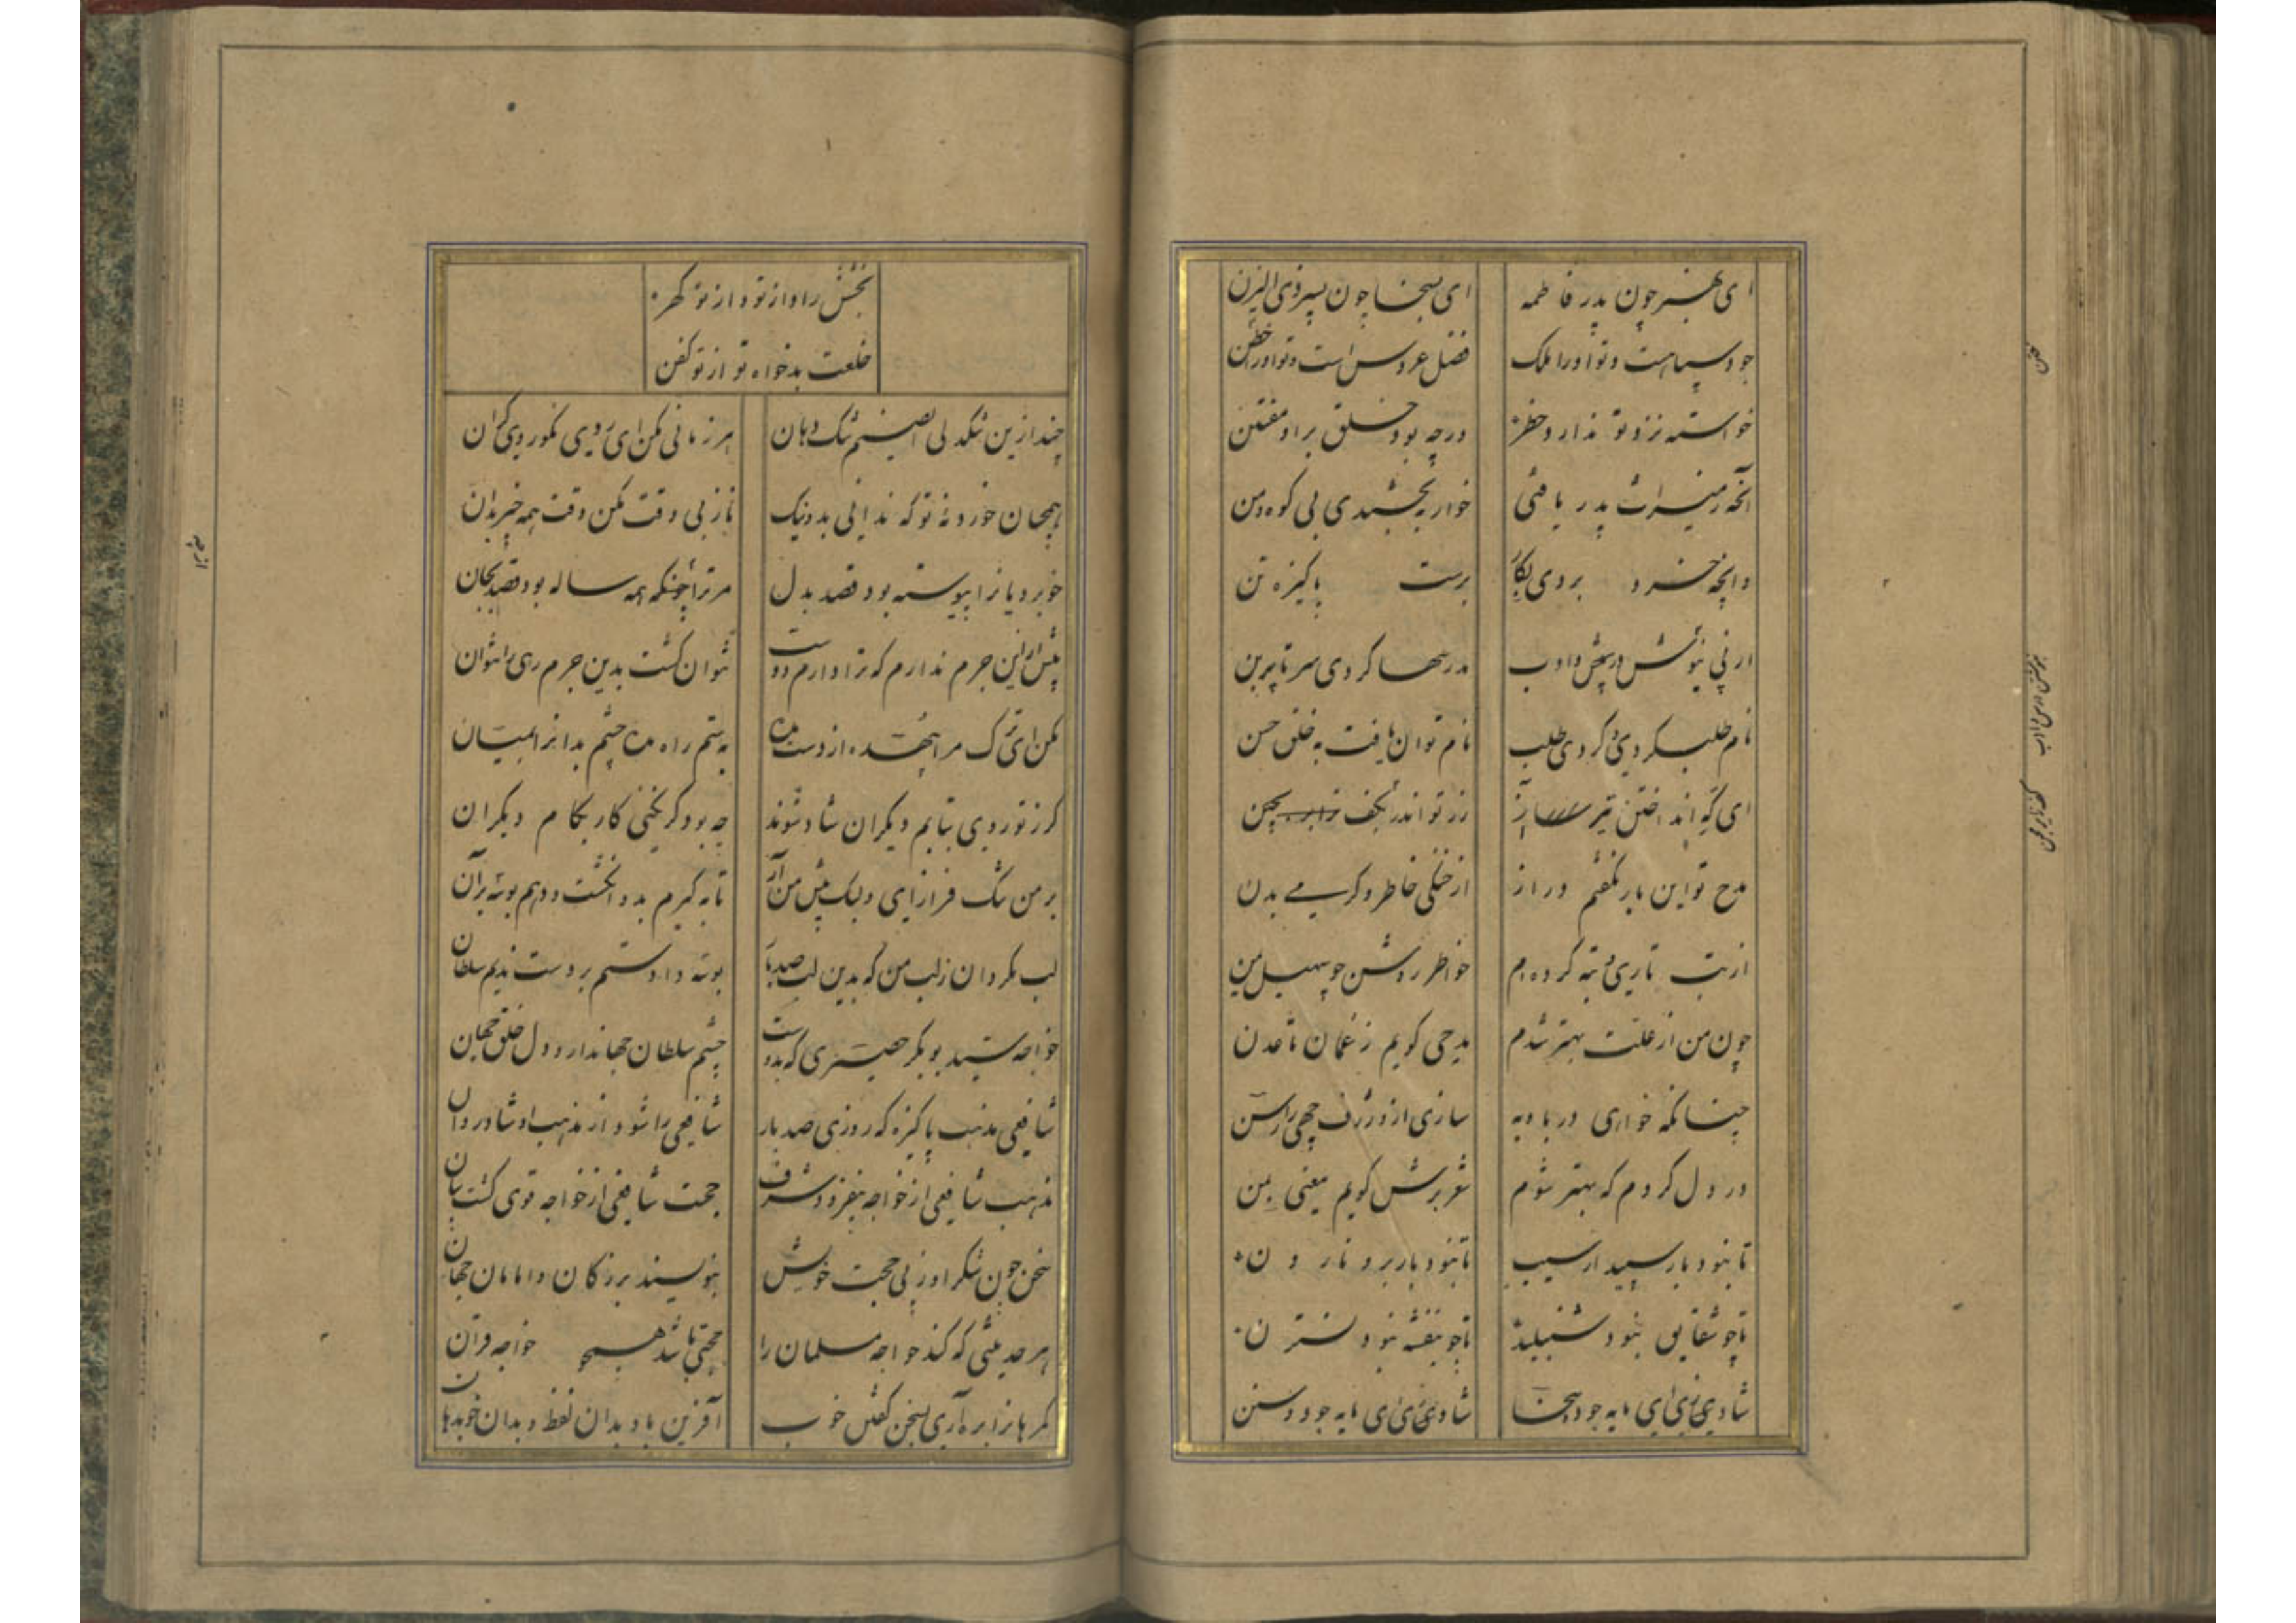 ای بهنر چون پدر فاطمه
ای بسخا چون پسر ذی الیزن
جود سپاهست و تو او را ملک
فضل عروس است و تو او را ختن
خواسته نزد تو ندارد خطر
ورچه بود خلق بر او مفتتن
آنچه ز میراث پدر یافتی
خوار ببخشیدی بی کوه و من
وآنچه خرد بردی بکار
برست پاکیزه تن
از پی نیوشش و بخش و ادب
مدرسها کردی سر تا پرن
نام طلب کردی و کردی طلب
نام توان یافت به خلق حسن
ای گه انداختن تیر
زر تو اندر بکف
مدح تو این بار نگفتم دراز
از خنکی خاطر و گرمی بدن
از تب تاری و تبه کرده ام
خواطر روشن چو سهیل یمن
چون من از علت بهتر شدم
مدحی گویم ز عمان تا عدن
چنانکه خواری در بادیه
سازی از و ژرف چهی را رسن
در دل کردم که بهتر شوم
شعر برش گویم معنی بمن
تا نبود بار سپیدار سیب
تا نبود بار برو نارون
تا چو شقایق نبود شنبلید
تا چو بنفشه نبود نسترن
شادی زی ای مایه جود و سخا
شادی زی ای مایه جود و سنن
بخشش را داد از تو و از تو گهر
خلعت بدخواه تو از تو کفن
چند ازین تنگدلی ای صنم تنگ دهان
هر زمانی مکن ای روی نکو روی گران
همچنان خوردهٔ تو که ندانی بد و نیک
ناز بی وقت مکن وقت همه خیر بدان
خوبرویانرا پیوسته بود قصد بدل
مر ترا چونکه همه ساله بود قصد بجان
بیش ازین جرم ندارم که ترا دارم دوست
نتوان کشت بدین جرم رهی را نتوان
مکن ای ترک مرا بیهده از دست مده
به ستم راه مده چشم بدانرا بمیان
گر ز تو روی بتابم دگران شاد شوند
چه بود گر نکنی کار بکام دگران
بر من تنگ فراز آی و لبک پیش من آر
تا به گیرم بدو انگشت و دهم بوسه بر آن
لب مگردان ز لب من که بدین لب صد بار
بوسه دادستم بر دست ندیم سلطان
خواجه سید بوبکر حصیری که بدوست
چشم سلطان جهاندار و دل خلق جهان
شافعی مذهب پاکیزه که روزی صد بار
شافعی را شود از مذهب او شاد روان
مذهب شافعی از خواجه بیفزود شرف
حجت شافعی از خواجه قوی گشت بیان
سخن چون شکر او ز پی حجت خویش
بنویسند بزرگان و امامان جهان
هر حدیثی که کند خواجه مسلمان را
حجتی باشد همچو خواجه قرآن
گمرهانرا بره آری بسخن گفتن خوب
آفرین باد بدان لفظ و بدان خوب زبان